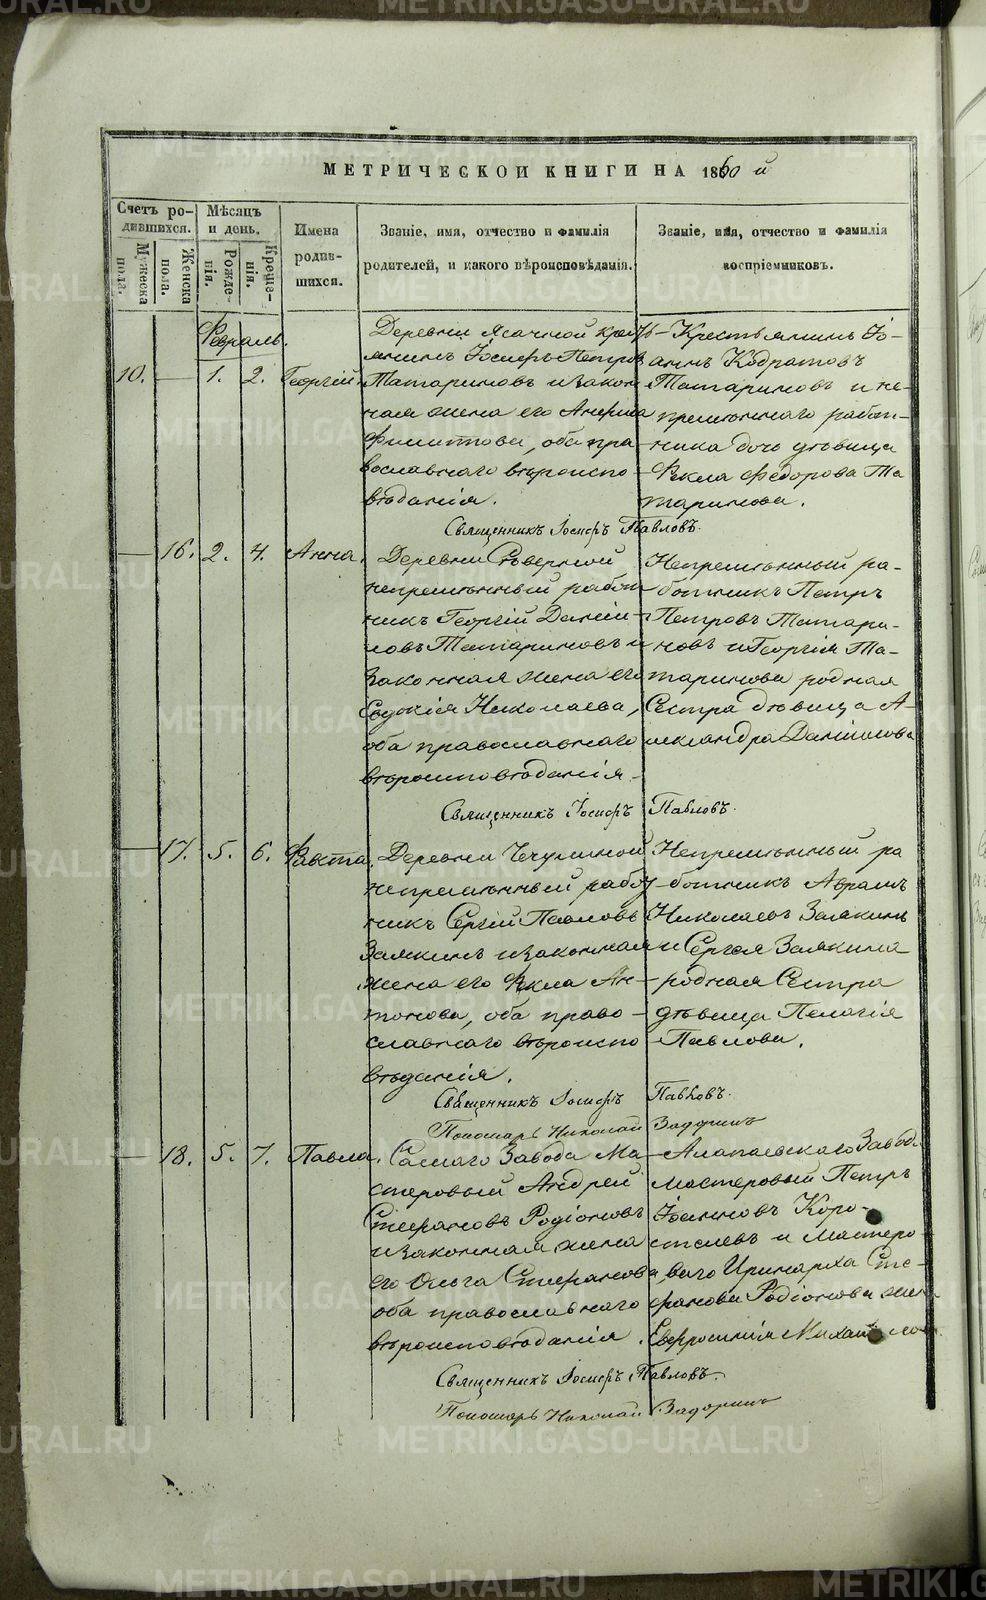 METRIKI.GASO-URAL.RU
МЕТРИЧЕСКОЙ КНИГИ НА 1860 й
Счетъ родившихся.
Мужеска пола.
Женска пола.
Мѣсяцъ и день.
Рожденія.
Крещенія.
Имена родившихся.
Званіе, имя, отчество и фамилія
родителей, и какого вѣроисповѣданія.
Званіе, имя, отчество и фамилія
воспріемниковъ.
Февраль.
10. — 1. 2. Георгій
Деревни Ясачной кресть-
янинъ Іосифъ Петровъ
Татариновъ и закон-
ная жена его
Филиппова, оба пра-
вославнаго вѣроиспо-
вѣданія.
Крестьянинъ Іо-
аннъ Кодратовъ
Татариновъ и не-
премѣннаго работ-
ника дочь дѣвица
Фекла Федорова Та-
таринова.
Священникъ Іосифъ Павловъ.
— 16. 2. 4. Анна.
Деревни Сѣверной
непремѣнный работ-
никъ Георгій Даніи-
ловъ Татариновъ и
законная жена его
Евдокія Николаева,
оба православнаго
вѣроисповѣданія.
Непремѣнный ра-
ботникъ Петръ
Петровъ Татари-
новъ и Георгія Та-
таринова родная
Сестра дѣвица А-
лександра Даніилова
Священникъ Іосифъ Павловъ.
— 17. 5. 6. Фавста.
Деревни
непремѣнный работ-
никъ Сергій Павловъ
Заякинъ и законная
жена его Фекла Ан-
тонова, оба право-
славнаго вѣроиспо-
вѣданія.
Непремѣнный ра-
ботникъ Авраамъ
Николаевъ Заякинъ
и Сергея Заякина
родная Сестра
дѣвица Пелагія
Павлова.
Священникъ Іосифъ Павловъ.
Пономарь Николай Задоринъ
— 18. 5. 7. Павла.
Самаго Завода Ма-
стеровый Андрей
Стефановъ Родіоновъ
и законная жена
его Ольга Стефанова
оба православнаго
вѣроисповѣданія.
Алапаевскаго Завода
мастеровый Петръ
Іоанновъ Коро-
стелевъ и Мастеро-
ваго Иринарха Сте-
фанова Родіонова жена
Евфросинія Михайлова
Священникъ Іосифъ Павловъ.
Пономарь Николай Задоринъ